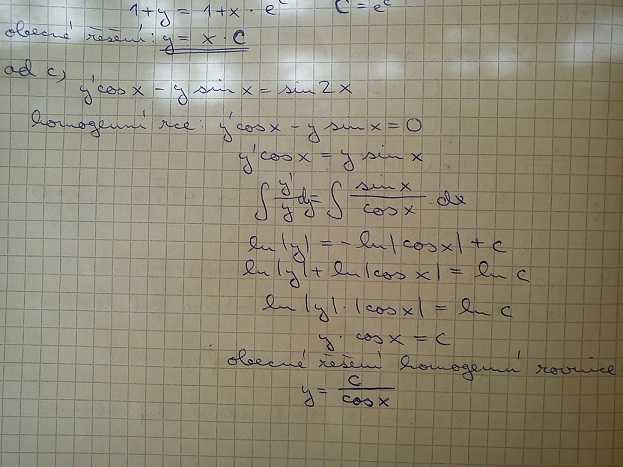 1+y = 1+x · e^c C = e^c
obecné řešení: y = x · C
ad c)
y'cosx - y sinx = sin 2x
homogenní rce: y'cosx - y sinx = 0
y'cosx = y sinx
∫ y'/y dy = ∫ sinx/cosx · dx
ln|y| = -ln|cosx| + c
ln|y| + ln|cosx| = ln c
ln|y| · |cosx| = ln c
y · cosx = c
obecné řešení homogenní rovnice
y = c/cosx